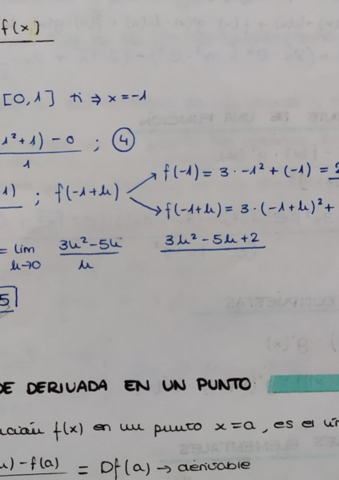 f(x)
[0,1] ti ⇒ x=-1
1²+1) - 0 ; ④
1
1) ; f(-1+h)
f(-1) = 3·-1²+(-1) = 2
f(-1+h) = 3·(-1+h)²+
= lím 3h²-5h 3h²-5h+2
h→0 h
5
DE DERIVADA EN UN PUNTO
f(x) en un punto x=a, es el lím
h) - f(a) = Df(a) → derivable